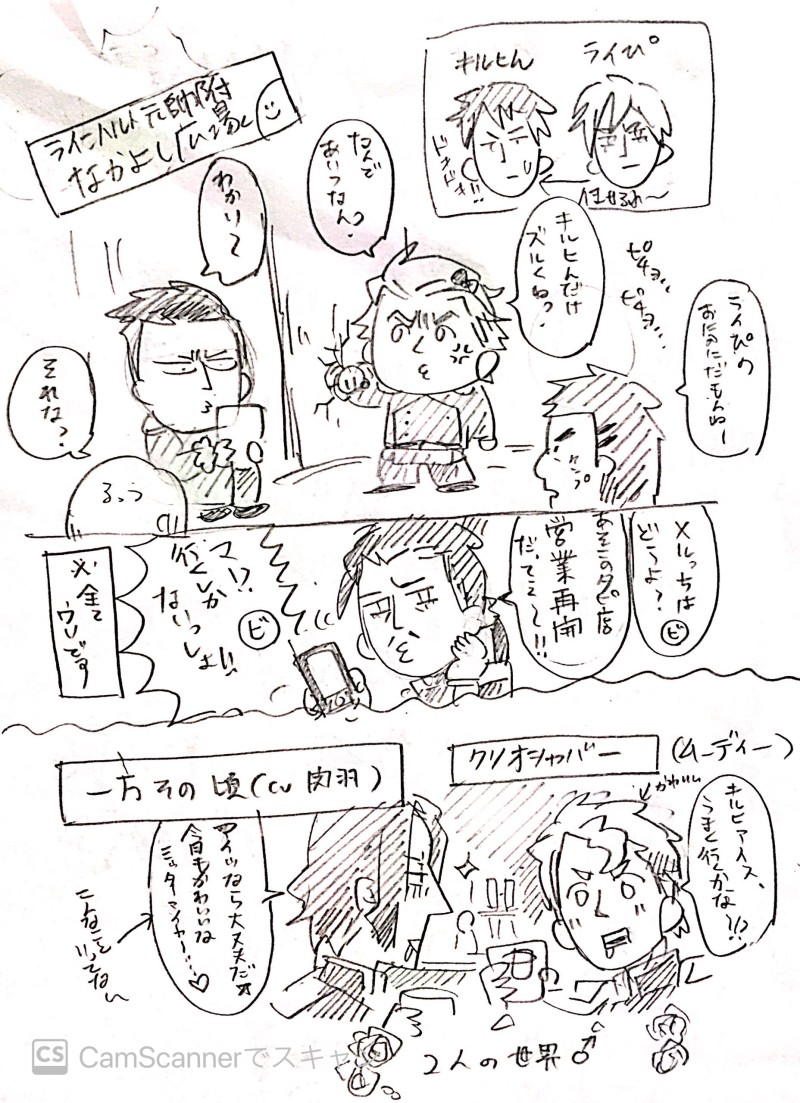 キルヒん
ライぴ
ドキドキ!!
任せるわ〜
ラインハルト元帥府
なかよし広場
なんで
あいつなん?
わかり〜
キルヒんだけ
ズルくね?
ピチョ…
ピチョ…
ライぴの
おにのにだもんねー
それな?
るっつ
メルっちは
どうよ?
ビ
あそこのタピ店
営業再開
だってえ〜!!
マ!?
行くしか
ないっしょ!!
ビ
※全て
ウソです
一方その頃(cv関羽)
クリオシャバー
(ムーディー)
かわいい
キルヒアイス、
うまく行くかな〜!?
アイツなら大丈夫だ
今日もかわいいな
ミッターマイヤー…♡
こんなこと
いってない
2人の世界♂
CS CamScannerでスキャ